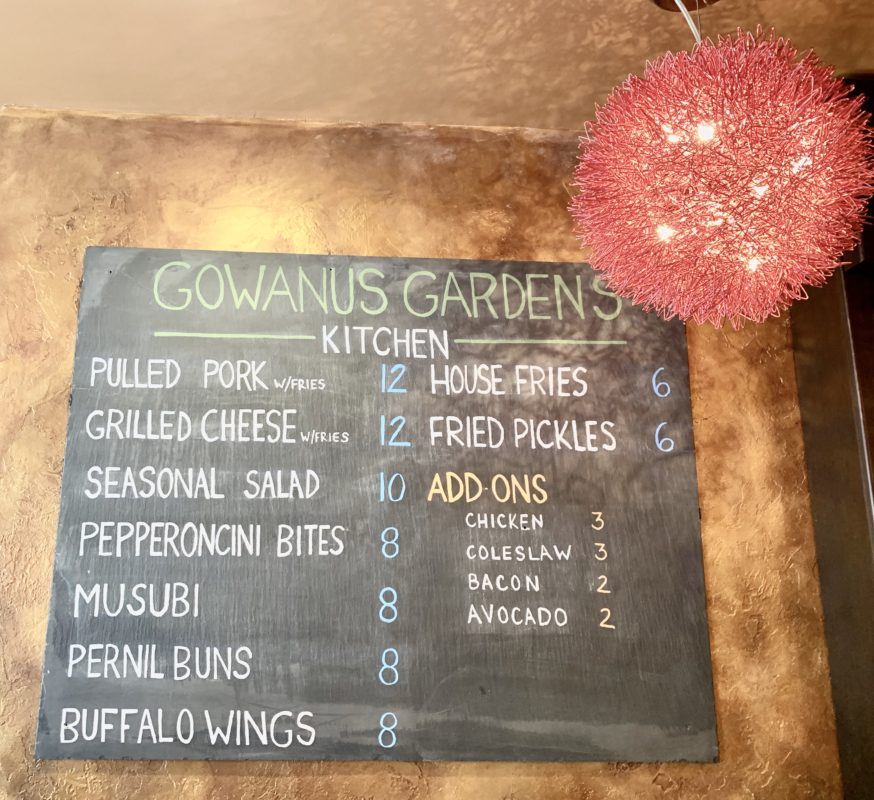 GOWANUS GARDENS
KITCHEN
PULLED PORK W/FRIES 12
GRILLED CHEESE W/FRIES 12
SEASONAL SALAD 10
PEPPERONCINI BITES 8
MUSUBI 8
PERNIL BUNS 8
BUFFALO WINGS 8
HOUSE FRIES 6
FRIED PICKLES 6
ADD-ONS
CHICKEN 3
COLESLAW 3
BACON 2
AVOCADO 2